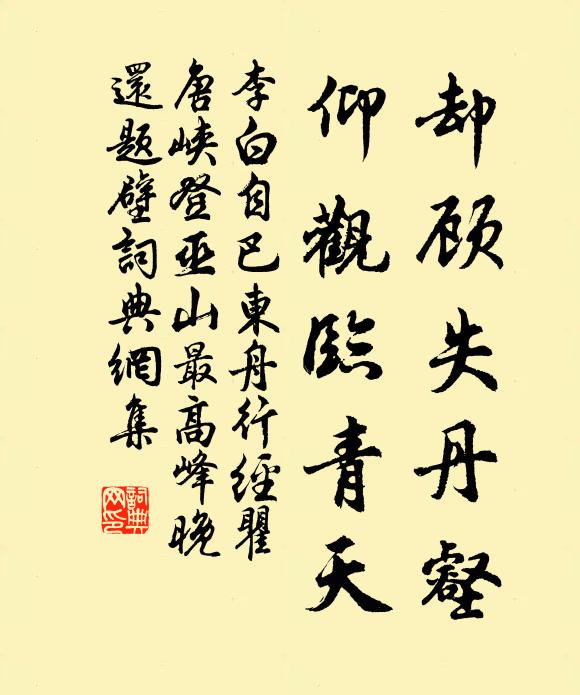 却顾失丹壑
仰觀臨青天
李白自巴東舟行經瞿
唐峽登巫山最高峰晚
還題壁詞典網集
詞典
网印